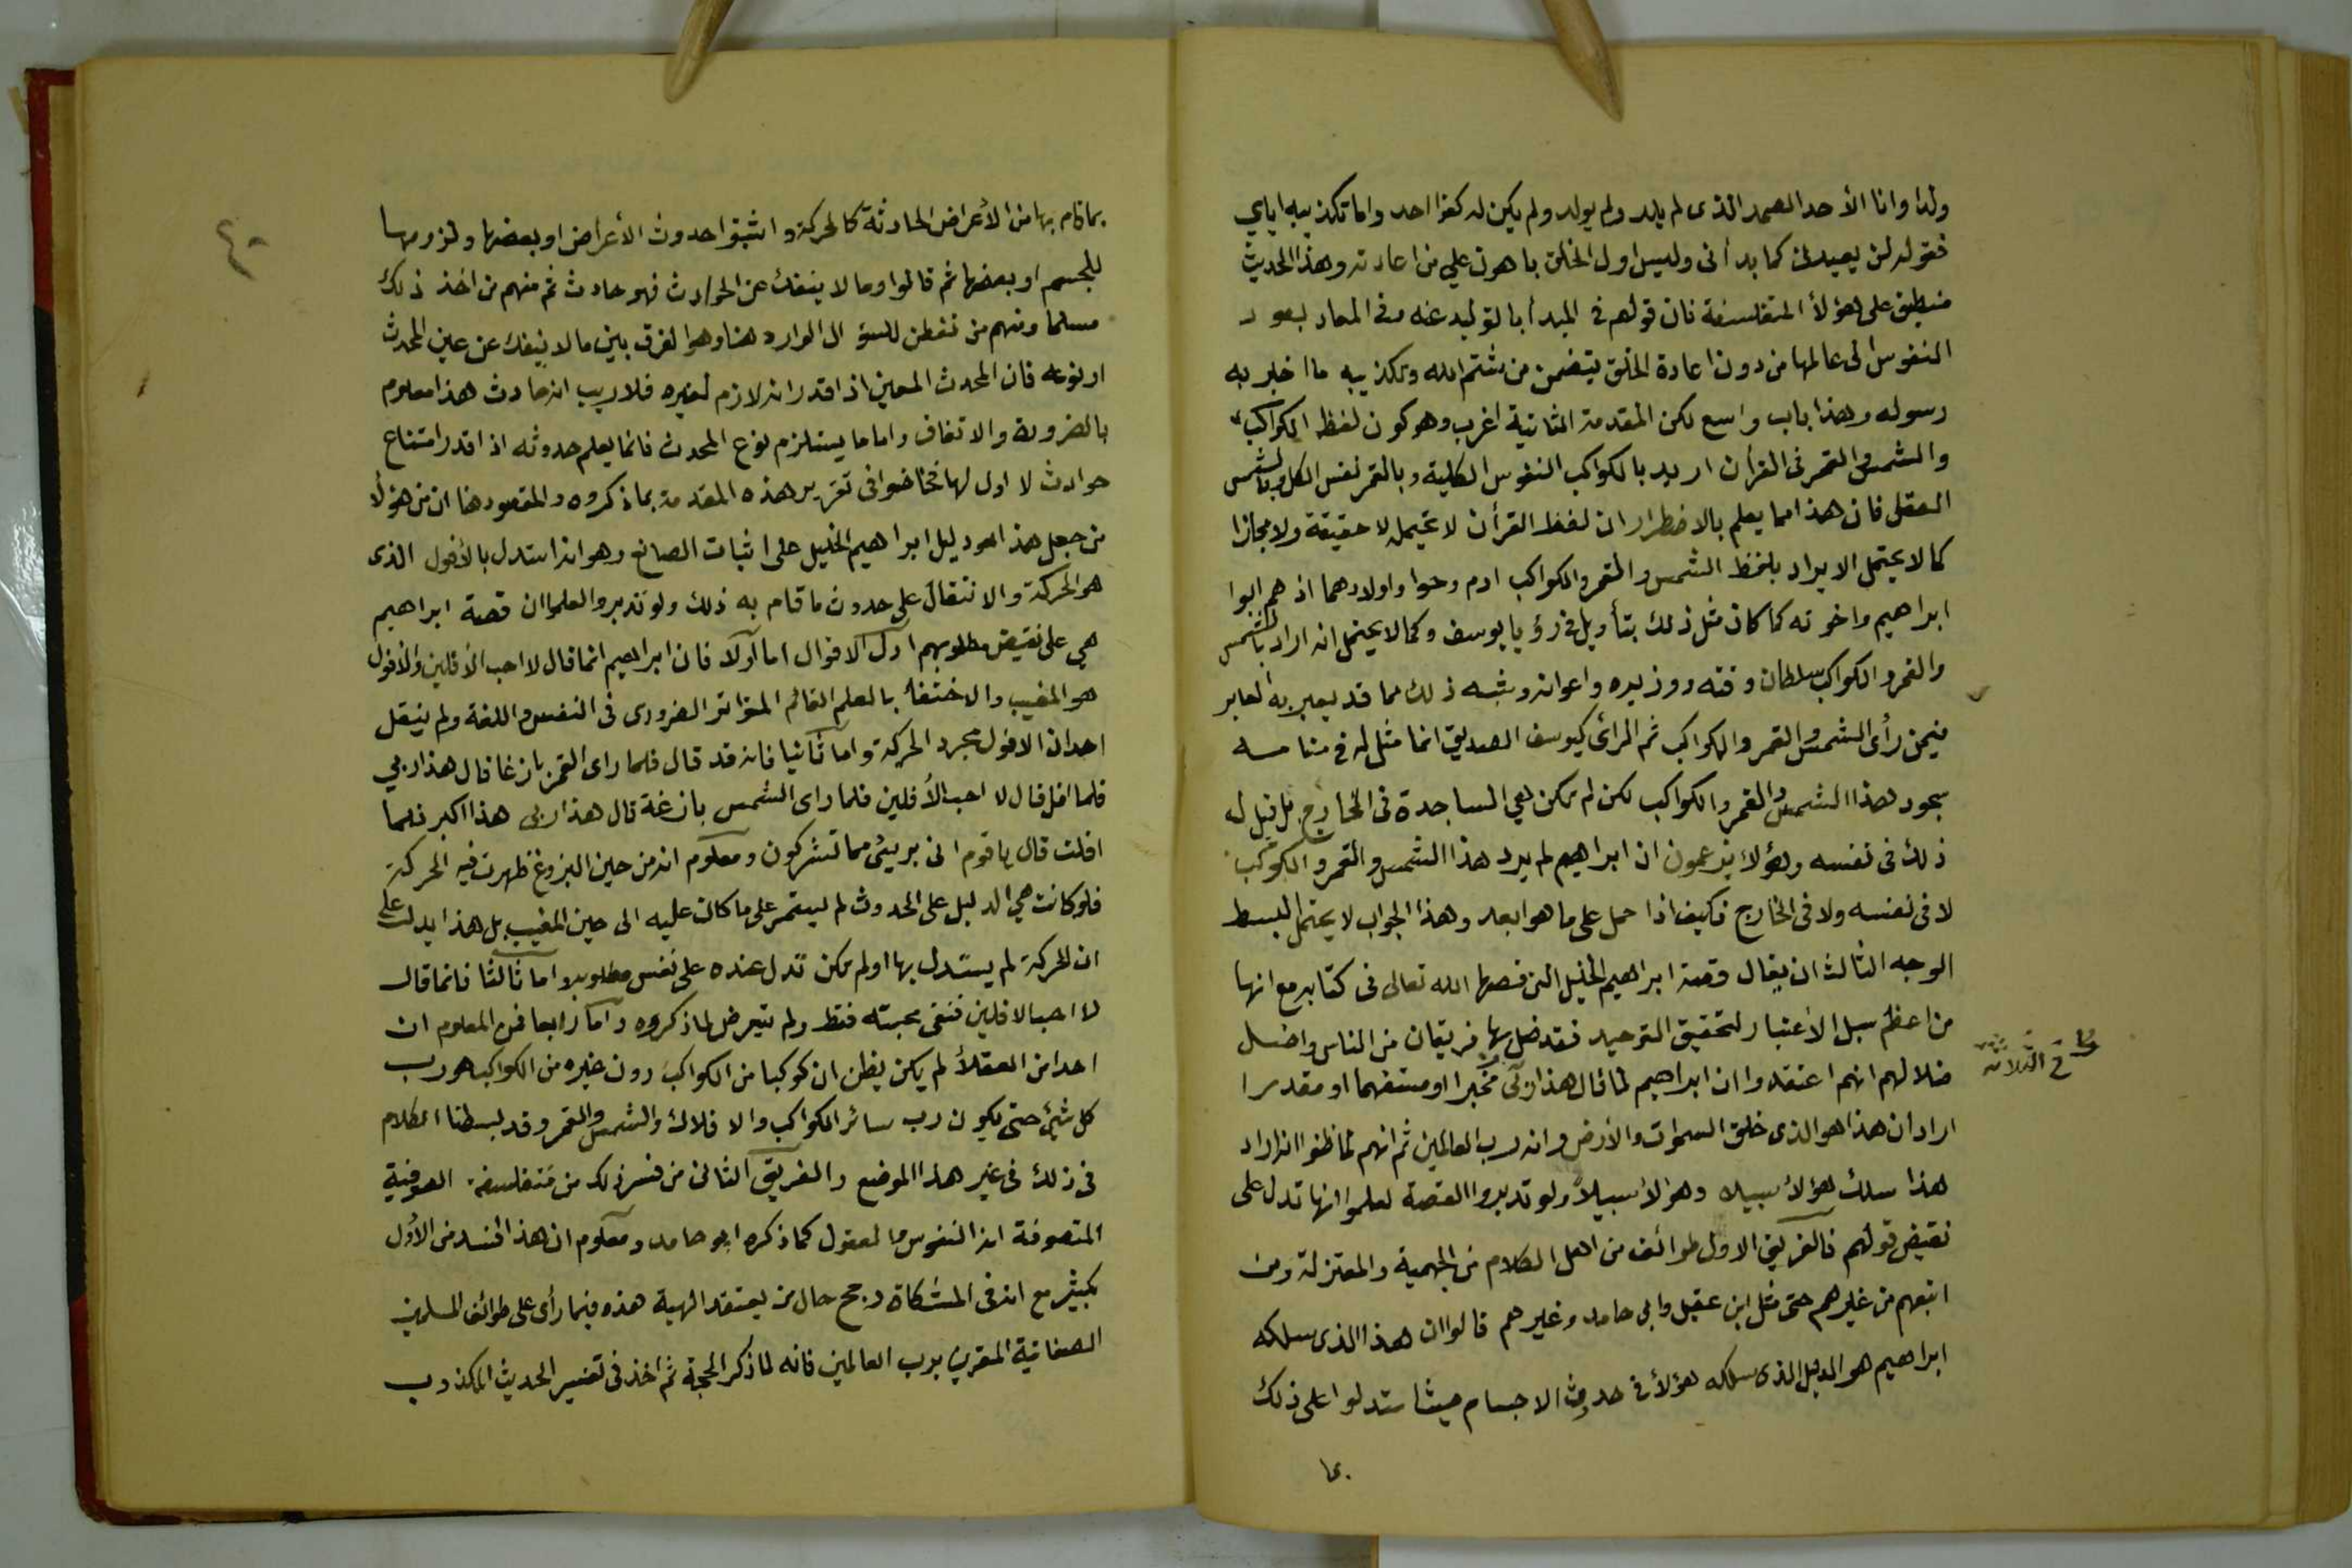 ولدا وانا الأحد الصمد الذى لم يلد ولم يولد ولم يكن له كفوا احد واما تكذيبه اياي
فقوله لن يعيدنى كما بدأنى وليس اول الخلق باهون علي من اعادته وهذا الحديث
منطبق على هؤلأ المتفلسفة فان قولهم فى المبدأ بالتوليد عنه وفى المعاد بعود
النفوس الى عالمها من دون اعادة الخلق يتضمن من شتم الله وتكذيبه ما اخبر به
رسوله وهذا باب واسع لكن المقدمة الثانية اغرب وهو كون لفظ الكواكب
والشمس والقمر فى القرأن اريد بالكواكب النفوس الكلية وبالقمر نفس الكل وبالشمس
العقل فان هذا مما يعلم بالاضطرار ان لفظ القرأن لا يحتمله لا حقيقة ولا مجازا
كما لا يحتمل الايراد بلفظ الشمس والقمر والكواكب ادم وحوا واولادهما اذ هم ابوا
ابراهيم واخوته كما كان مثل ذلك بتأويل فى رؤيا يوسف وكما لا يحتمل انه اراد بالشمس
والقمر والكواكب سلطان وقته ووزيره واعوانه وشبه ذلك مما قد يعبر به العابر
فيمن رأى الشمس والقمر والكواكب ثم الرائ كيوسف الصديق انما مثل له فى منامه
سجود هذا الشمس والقمر والكواكب لكن لم تكن هي الساجدة فى الخارج بل قيل له
ذلك فى نفسه وهؤلاء يزعمون ان ابراهيم لم يرد هذا الشمس والقمر والكوكب
لا فى نفسه ولا فى الخارج فكيف اذا حمل على ما هو ابعد وهذا الجواب لا يحتمل البسط
الوجه الثالث ان يقال قصة ابراهيم الخليل التى قصها الله تعالى فى كتابه مع انها
من اعظم سبل الاعتبار لتحقيق التوحيد فقد ضل بها فريقان من الناس واصل
ضلالهم انهم اعتقدوا ان ابراهيم لما قال هذا ربى مخبرا او مستفهما او مقدرا
اراد ان هذا هو الذى خلق السموات والأرض وانه رب العالمين ثم انهم لما ظنوا انه اراد
هذا سلك هؤلأ سبيلا وهؤلأ سبيلاً ولو تدبروا القصة لعلموا انها تدل على
نقيض قولهم فالفريق الاول طوائف من اهل الكلام من الجهمية والمعتزلة ومن
اتبعهم من غيرهم حتى مثل ابن عقيل وابى حامد وغيرهم قالوا ان هذا الذى سلكه
ابراهيم هو الدليل الذى سلكه هؤلأ فى حدوث الاجسام حيث استدلوا على ذلك
بما
٤٠
بما قام بها من الأعراض الحادثة كالحركة واثبتوا حدوث الأعراض او بعضها ولزومها
للجسم او بعضها ثم قالوا وما لا ينفك عن الحوادث فهو حادث ثم منهم من اخذ ذلك
مسلما ومنهم من تفطن للسؤال الوارد هنا وهو الفرق بين ما لا ينفك عن عين المحدث
او نوعه فان المحدث المعين اذا قدر انه لازم لغيره فلا ريب انه حادث هذا معلوم
بالضرورة والاتفاق واما ما يستلزم نوع المحدث فانما يعلم حدوثه اذا قدر امتناع
حوادث لا اول لها فخاضوا فى تقرير هذه المقدمة بما ذكروه والمقصود هنا ان من هؤلأ
من جعل هذا هو دليل ابراهيم الخليل على اثبات الصانع وهو انه استدل بالأفول الذى
هو الحركة والانتقال على حدوث ما قام به ذلك ولو تدبروا لعلموا ان قصة ابراهيم
هي على نقيض مطلوبهم ادل الاقوال اما اولا فان ابراهيم انما قال لا احب الأفلين والأفول
هو المغيب والاختفأ بالعلم القائم المتواتر الضرورى فى النفس واللغة ولم ينقل
احد ان الافول مجرد الحركة واما ثانيا فانه قد قال فلما راى القمر بازغا قال هذا ربي
فلما افل قال لا احب الأفلين فلما راى الشمس بازغة قال هذا ربى هذا اكبر فلما
افلت قال يا قوم انى بريئ مما تشركون ومعلوم انه من حين البزوغ ظهرت فيه الحركة
فلو كانت هي الدليل على الحدوث لم يستمر على ما كان عليه الى حين المغيب بل هذا يدل على
ان الحركة لم يستدل بها او لم تكن تدل عنده على نفس مطلوبه واما ثالثا فانما قال
لا احب الافلين فنفى محبته فقط ولم يتعرض لما ذكروه واما رابعا فمن المعلوم ان
احدا من العقلأ لم يكن يظن ان كوكبا من الكواكب دون غيره من الكواكب هو رب
كل شئ حتى يكون رب سائر الكواكب والافلاك والشمس والقمر وقد بسطنا الكلام
فى ذلك فى غير هذا الموضع والفريق الثانى من فسر ذلك من متفلسفة الصوفية
المتصوفة انه النفوس والعقول كما ذكره ابو حامد ومعلوم ان هذا افسد من الأول
بكثير مع انه فى المشكاة رجح حال من يعتقد الهية هذه فيما رأى على طوائف المسلمين
الصفاتية المقرين برب العالمين فانه لما ذكر الحجة ثم اخذ فى تفسير الحديث المكذوب